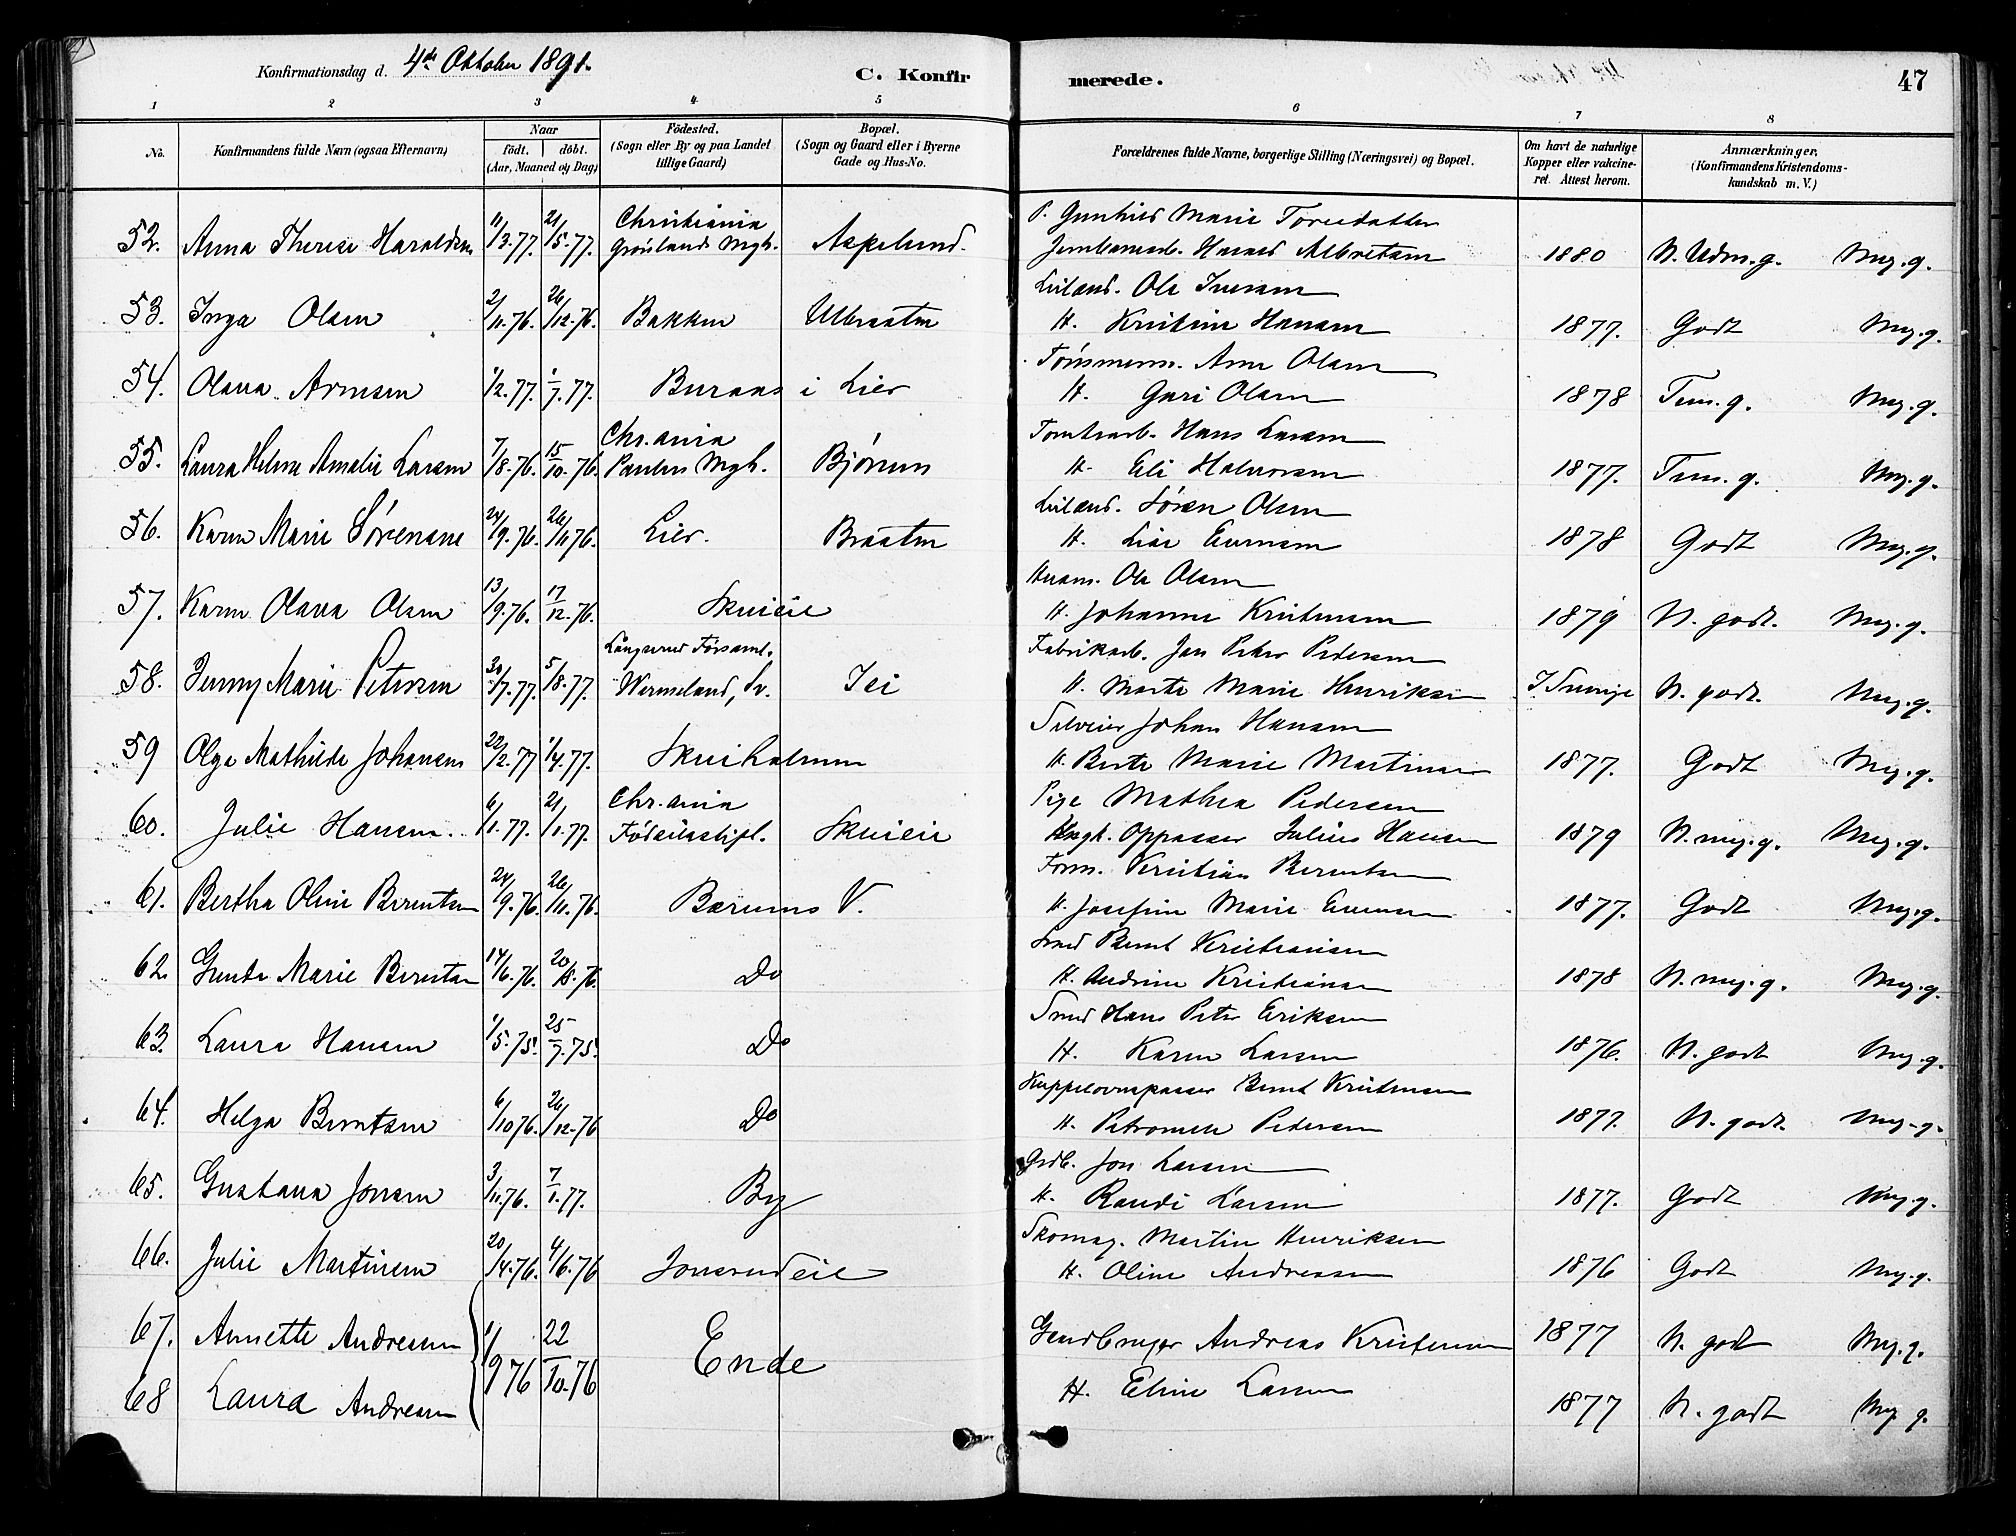 Konfirmationsdag d. 4de Oktober 1891.
C. Konfirmerede.
47
1 2 3 4 5 6 7 8
No.
Konfirmandens fulde Navn (ogsaa Efternavn)
Naar
födt. döbt.
(Aar, Maaned og Dag)
Födested.
(Sogn eller By og paa Landet
tillige Gaard)
Bopæl.
(Sogn og Gaard eller i Byerne
Gade og Hus-No.
Forældrenes fulde Navne, borgerlige Stilling (Næringsvei) og Bopæl.
Om havt de naturlige
Kopper eller vakcine-
ret. Attest herom.
Anmærkninger.
(Konfirmandens Kristendoms-
kundskab m. V.)
Christiania P. Gunhild Marie Toresdatter
52. Anna Therese Haraldsen 11/3.77. 21/5.77. Grønlands Mgh. Aspelund. Jernbanearb. Harald Albretsen 1880 N. Udm.g. Meg.g.
Leilænd. Ole Iversen
53. Inga Olsen 2/11.76. 26/12.76. Bakken Ulbraaten H. Kristine Hansen 1877. Godt Meg.g.
Tømmerm. Arne Olsen
54. Olava Arnesen 1/2.77. 1/7.77. Buraas i Lier H. Guri Olsen 1878 Tem.g. Meg.g.
Chr.ania Tomtearb. Hans Larsen
55. Laura Helene Amalie Larsen 7/8.76. 15/10.76. Paulus Mgh. Bjørum H. Eli Halvorsen 1877. Tem.g. Meg.g.
Leilænd. Søren Olsen
56. Karen Marie Sørensen 24/9.76. 26/11.76. Lier. Braaten H. Lise Evensen 1878 Godt Meg.g.
Husm. Ole Olsen
57. Karen Olava Olsen 13/9.76. 17/12.76. Skuieie H. Johanne Kristensen 1879 N. godt. Meg.g.
Långserud Församl. Fabrikarb. Jan Peter Pedersen
58. Jenny Marie Petersen 30/7.77. 5/8.77. Wermeland, Sv. Isi H. Marte Marie Henriksen I Sverige N. godt. Meg.g.
Selveier Johan Hansen
59 Olga Mathilde Johansen 22/2.77 1/4.77. Skuiholmen H. Berte Marie Martinsen 1877. Godt Meg.g.
Chr.ania Pige Mathea Pedersen
60. Julie Hansen. 6/1.77. 21/1.77. Fødselsstift. Skuieie Ungk. Oppasser Julius Hansen 1879 N. meg.g. Meg.g.
Form. Kristian Berentsen
61. Bertha Oline Berentsen 24/9.76. 26/11.76. Bærums V. H. Josefine Marie Evensen 1877. Godt Meg.g.
Smed Bernt Kristiansen
62. Gunda Marie Berntsen 14/6.76. 20/8.76. Do H. Andrine Kristiansen 1878 N. meg.g. Meg.g.
Smed Hans Peter Eriksen
63. Laura Hansen 1/5.75. 25/7.75. Do H. Karen Larsen 1876. N. godt Meg.g.
Kuppelovnspasser Bernt Kristensen
64. Helga Berntsen 6/10.76. 26/12.76 Do H. Petronelle Pedersen 1877. N. godt. Meg.g.
Grdb. Jon Larsen
65. Gustava Jonsen 3/11.76. 7/1.77. By H. Randi Larsen 1877. Godt Meg.g.
Skomag. Martin Henriksen
66. Julie Martinsen 20/4.76. 4/6.76 Jonsrudeie H. Oline Andreasen 1876 Godt Meg.g.
67. Annette Andreasen 1/9 76 22/10.76 Ende Gaardbruger Andreas Kristensen 1877 N. godt Meg.g.
68 Laura Andreasen H. Eline Larsen 1877 N. godt Meg g.